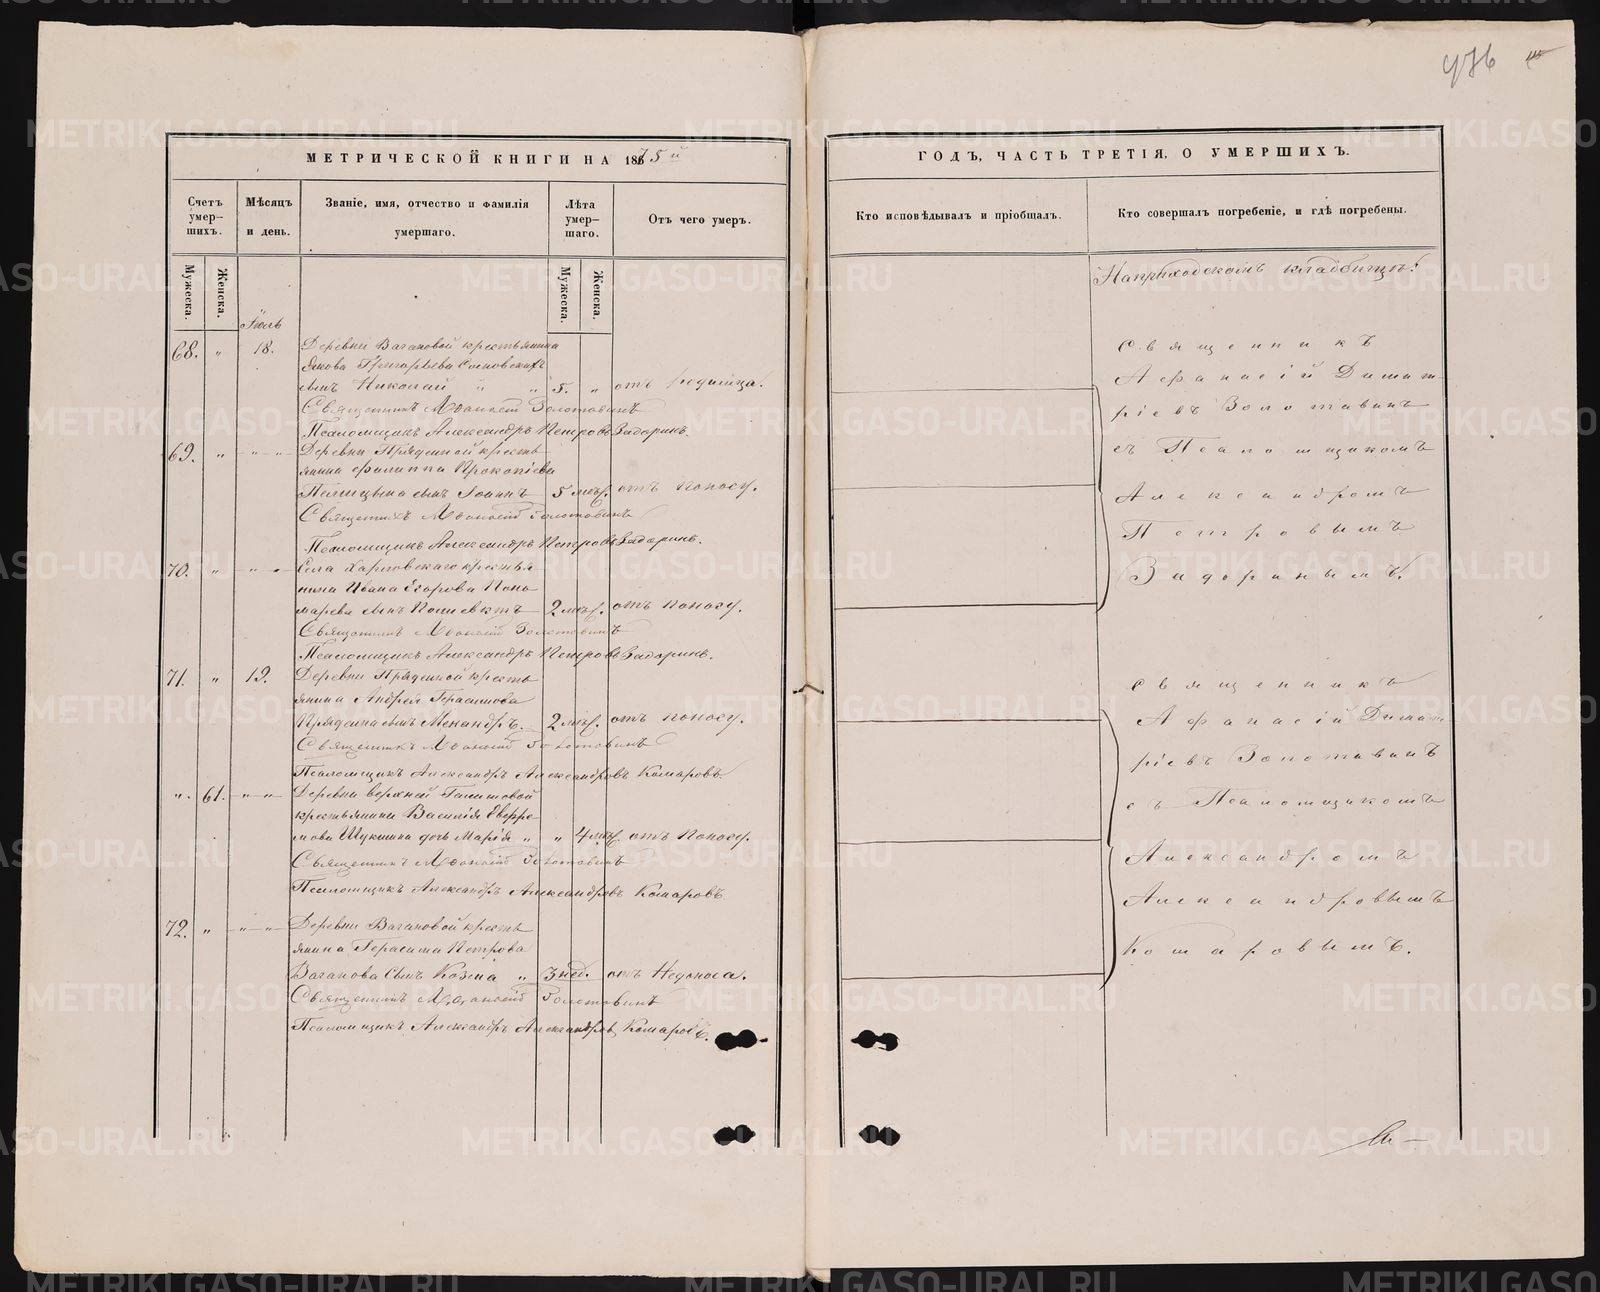 436
МЕТРИЧЕСКОЙ КНИГИ НА 1875й
ГОДЪ, ЧАСТЬ ТРЕТІЯ, О УМЕРШИХЪ.
Счетъ умер-шихъ.
Мѣсяцъ и день.
Званіе, имя, отчество и фамилія умершаго.
Лѣта умер-шаго.
Отъ чего умеръ.
Кто исповѣдывалъ и пріобщалъ.
Кто совершалъ погребеніе, и гдѣ погребены.
Мужеска.
Женска.
Мужеска.
Женска.
На приходскомъ кладбищѣ.
Іюль
68. " 18. Деревни Вагановой крестьянина
Якова Григорьева
сынъ Николай " " 5. " отъ родимца.
Священникъ Аѳанасій Золотавинъ
Псаломщикъ Александръ Петровъ Задоринъ.
69. " " " Деревни Пряденной кресть-
янина Филиппа Прокопіева
сынъ Іоаннъ 5 мѣс. отъ поносу.
Священникъ Аѳанасій Золотавинъ
Псаломщикъ Александръ Петровъ Задоринъ.
70. " " " Села Харловскаго крестья
нина Ивана Егорова Поно
марева сынъ Полиевктъ 2 мѣс. отъ поносу.
Священникъ Аѳанасій Золотавинъ
Псаломщикъ Александръ Петровъ Задоринъ.
71. " 19. Деревни Пряденной кресть
янина Андрея Герасимова
Прядеина сынъ Менандръ. 2 мѣс. отъ поносу.
Священникъ Аѳанасій Золотавинъ
Псаломщикъ Александръ Александровъ Комаровъ
". 61. " " Деревни верхней
крестьянина Василія Евфре
мова Шукшина дочь Марія " " 4 мѣс. отъ поносу.
Священникъ Аѳанасій Золотавинъ
Псаломщикъ Александръ Александровъ Комаровъ
72. " " " Деревни Вагановой кресть
янина Герасима Петрова
Ваганова сынъ Козма " 3 нед. отъ Недоноса.
Священникъ Аѳанасій Золотавинъ
Псаломщикъ Александръ Александровъ Комаровъ.
Священникъ
Афанасій Димит-
ріевъ Золотавинъ
съ Псаломщикомъ
Александромъ
Петровымъ
Задоринымъ.
Священникъ
Афанасій Димит
ріевъ Золотавинъ
съ Псаломщикомъ
Александромъ
Александровымъ
Комаровымъ.
METRIKI.GASO-URAL.RU